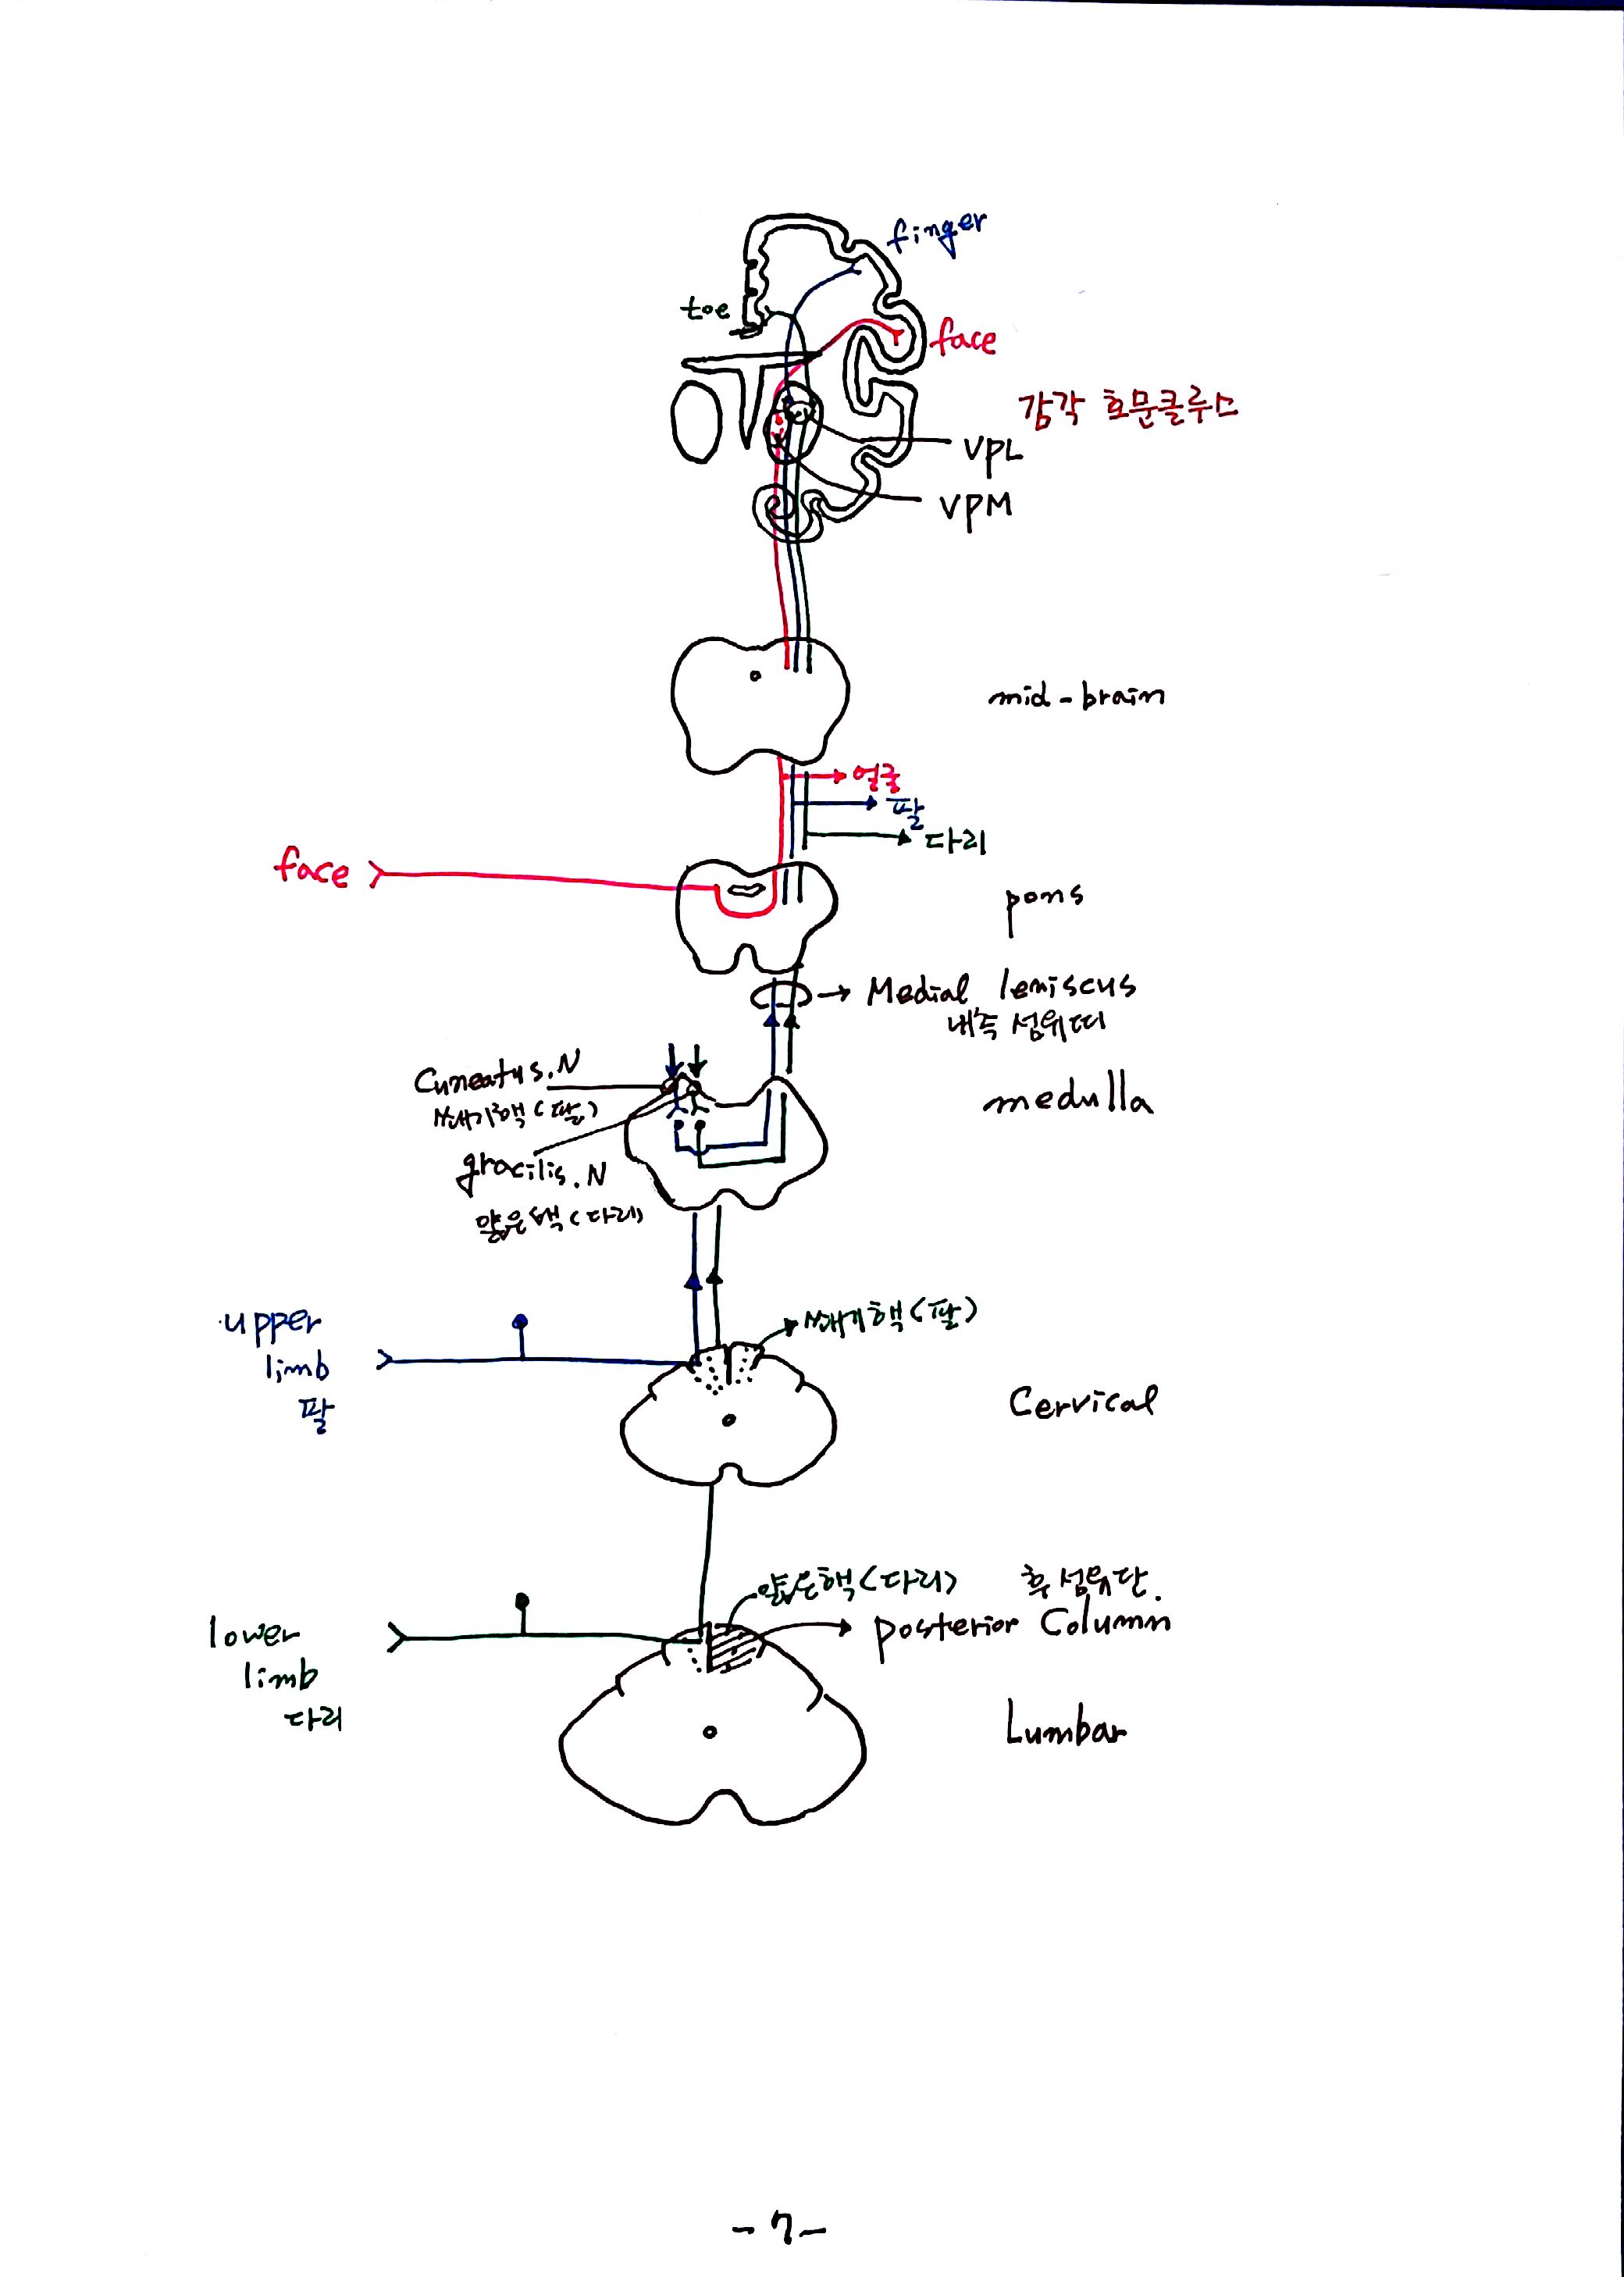 finger
toe
face
감각 호문클루스
VPL
VPM
mid-brain
얼굴
팔
다리
face
pons
Medial lemiscus
내측 섬유띠
Cuneatus.N
쐐기핵(팔)
medulla
gracilis.N
얇은핵(다리)
upper
limb
팔
쐐기핵(팔)
Cervical
얇은핵(다리) 후섬유단.
posterior Column
lower
limb
다리
Lumbar
-7-